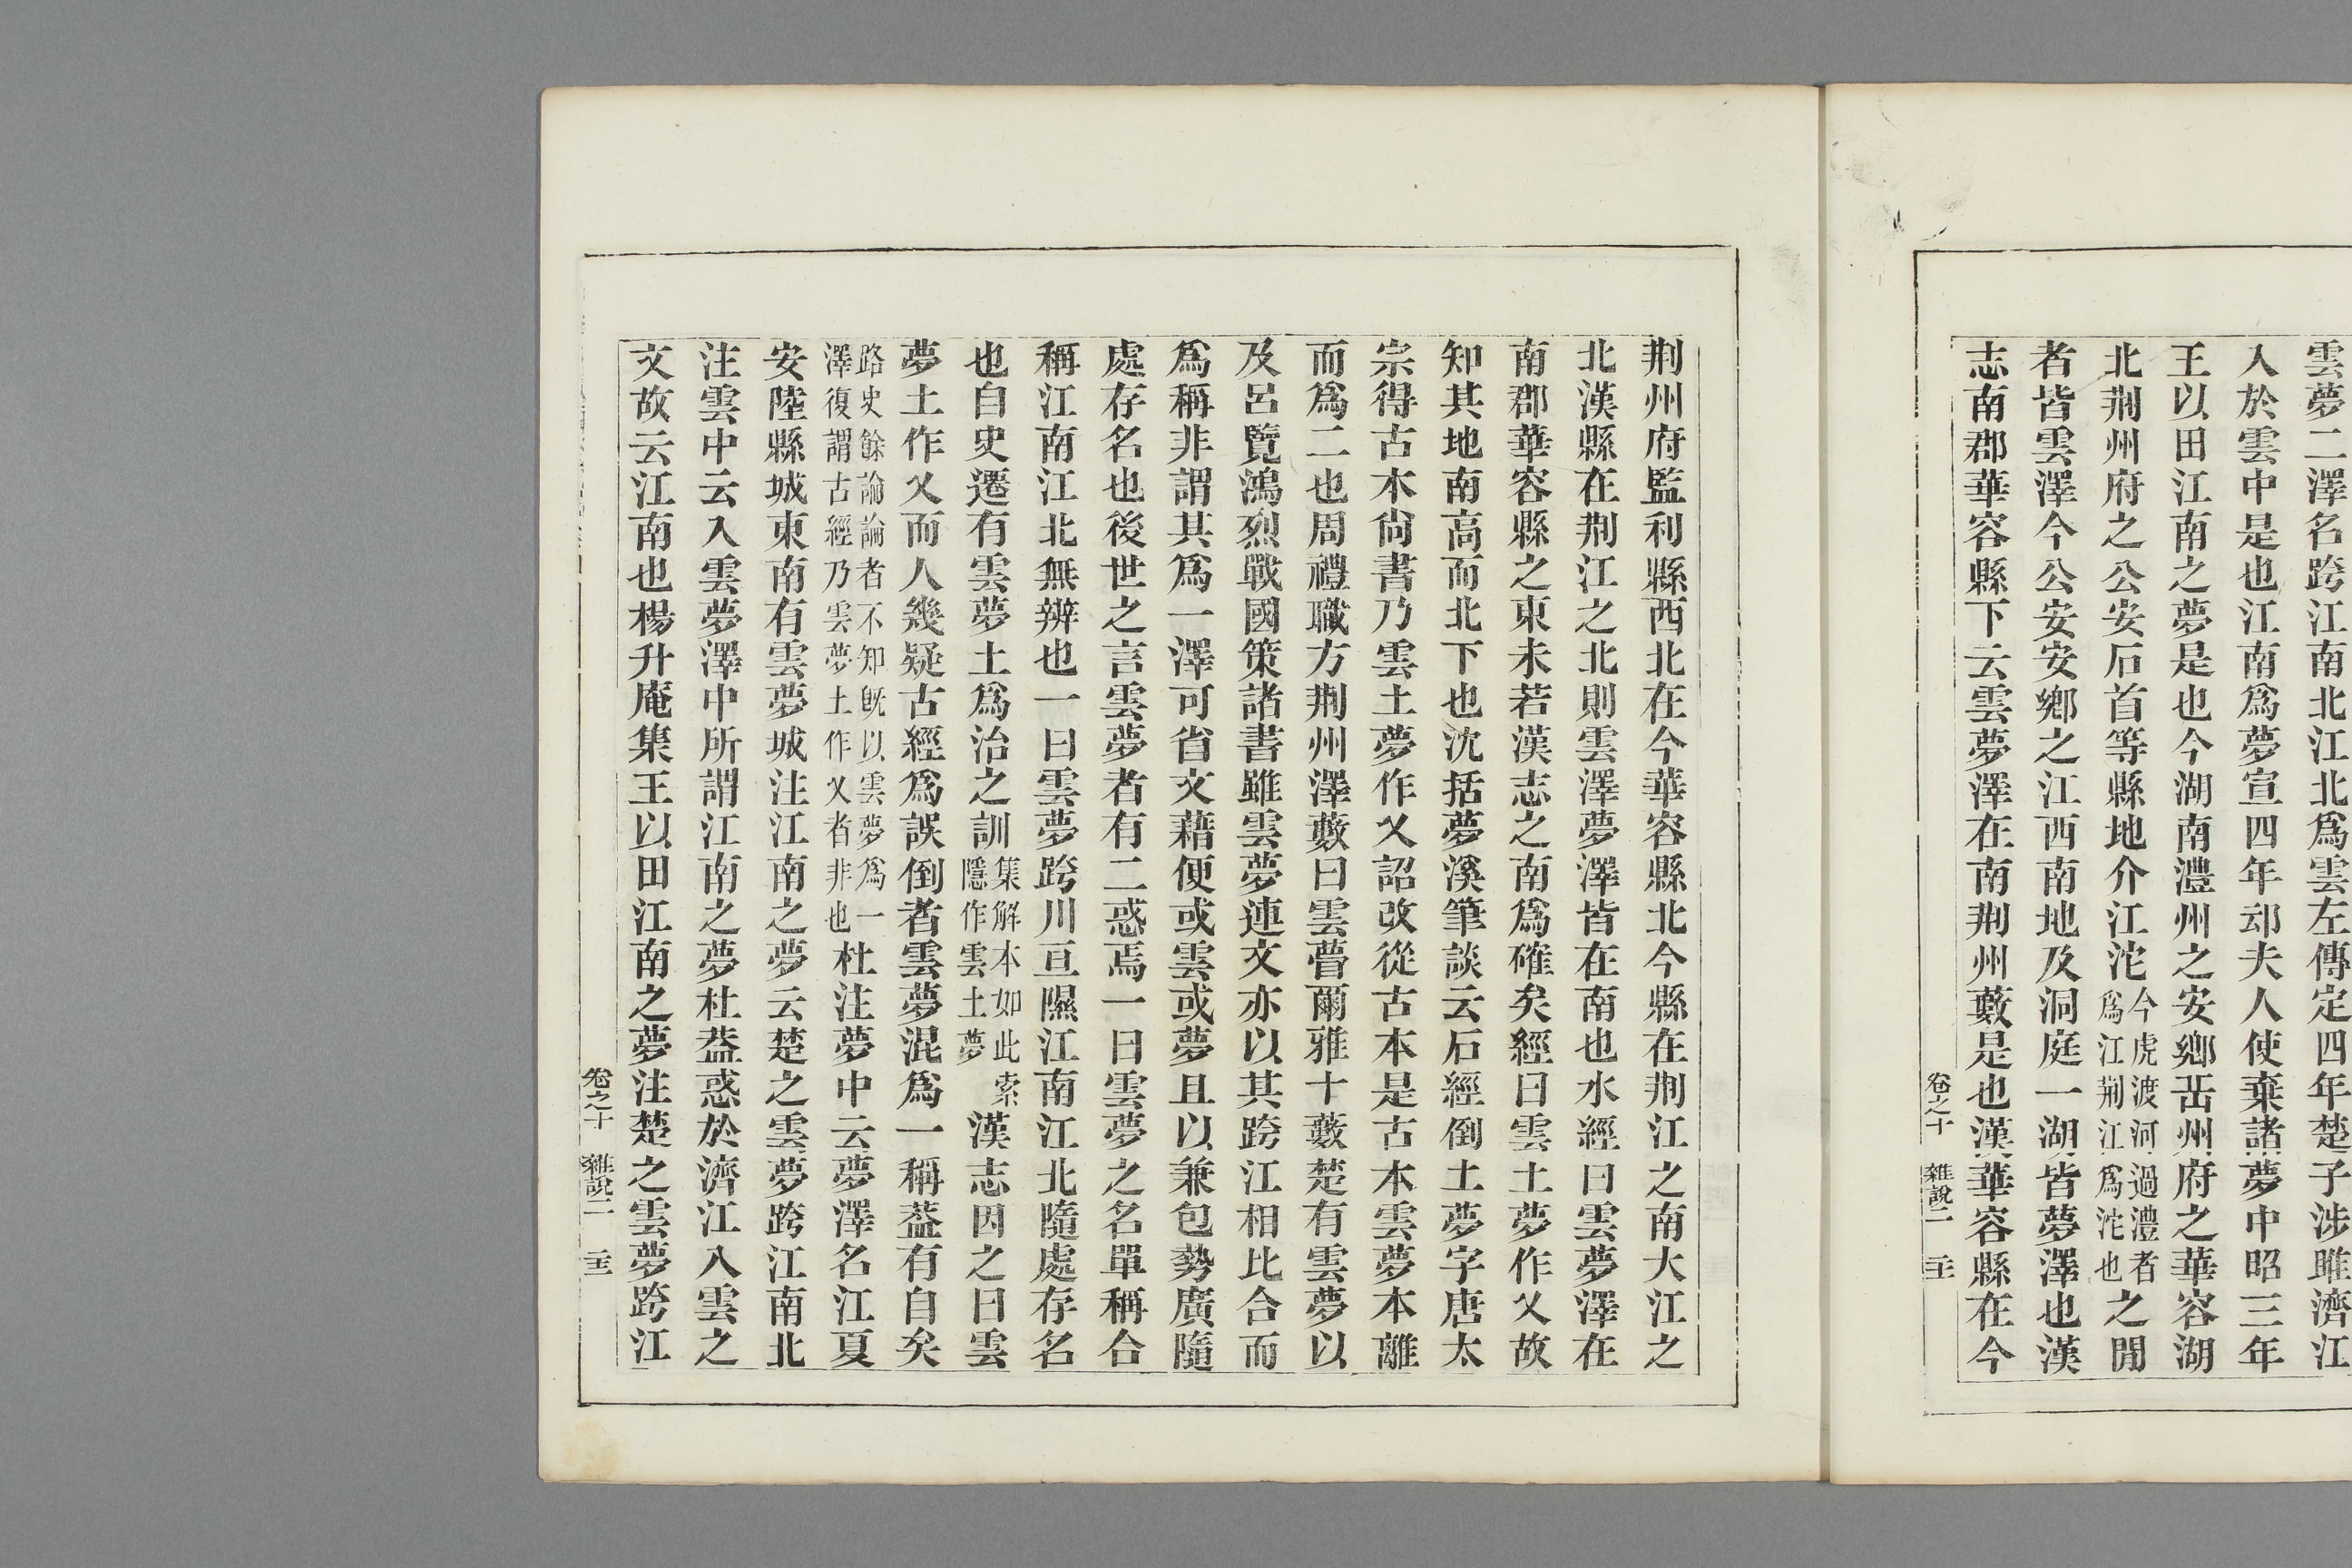 雲夢二澤名跨江南北江北爲雲左傳定四年楚子涉雎濟江
入於雲中是也江南爲夢宣四年䢵夫人使棄諸夢中昭三年
王以田江南之夢是也今湖南澧州之安鄉岳州府之華容湖
北荆州府之公安石首等縣地介江沱今虎渡河過澧者爲江荆江爲沱也之閒
者皆雲澤今公安安鄉之江西南地及洞庭一湖皆夢澤也漢
志南郡華容縣下云雲夢澤在南荆州藪是也漢華容縣在今
卷之十 雜說二
荆州府監利縣西北在今華容縣北今縣在荆江之南大江之
北漢縣在荆江之北則雲澤夢澤皆在南也水經曰雲夢澤在
南郡華容縣之東未若漢志之南爲確矣經曰雲土夢作乂故
知其地南高而北下也沈括夢溪筆談云石經倒土夢字唐太
宗得古本尙書乃雲土夢作乂詔改從古本是古本雲夢本離
而爲二也周禮職方荆州澤藪曰雲瞢爾雅十藪楚有雲夢以
及呂覽鴻烈戰國策諸書雖雲夢連文亦以其跨江相比合而
爲稱非謂其爲一澤可省文藉便或雲或夢且以兼包勢廣隨
處存名也後世之言雲夢者有二惑焉一曰雲夢之名單稱合
稱江南江北無辨也一曰雲夢跨川亘隰江南江北隨處存名
也自史遷有雲夢土爲治之訓集解本如此索隱作雲土夢漢志因之曰雲
夢土作乂而人幾疑古經爲誤倒者雲夢混爲一稱葢有自矣
路史餘論論者不知旣以雲夢爲一澤復謂古經乃雲夢土作乂者非也杜注夢中云夢澤名江夏
安陸縣城東南有雲夢城注江南之夢云楚之雲夢跨江南北
注雲中云入雲夢澤中所謂江南之夢杜葢惑於濟江入雲之
文故云江南也楊升庵集王以田江南之夢注楚之雲夢跨江
卷之十 雜說二